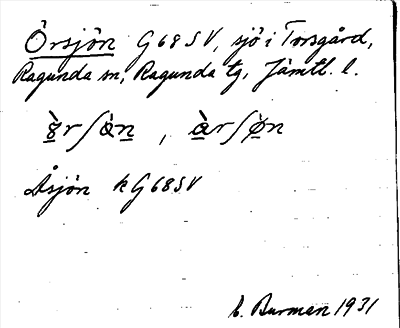 Örsjön G68SV, sjö i Torsgård,
Ragunda sn, Ragunda tg, Jämtl. l.
Åsjön k G68SV
E. Burman 1931